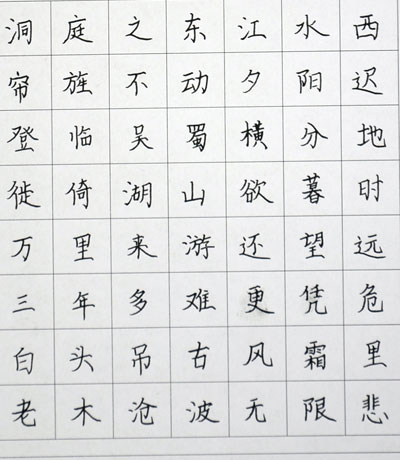 洞庭之东江水西
帘旌不动夕阳迟
登临吴蜀横分地
徙倚湖山欲暮时
万里来游还望远
三年多难更凭危
白头吊古风霜里
老木沧波无限悲